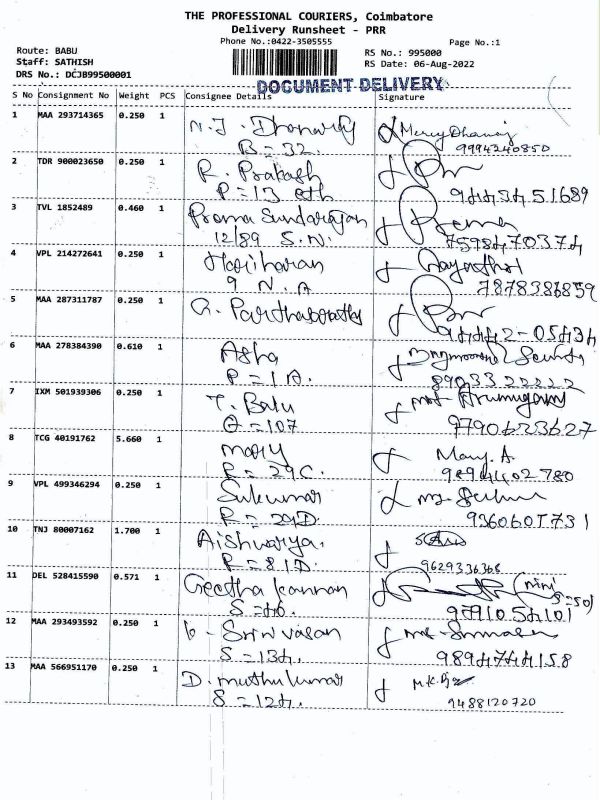 THE PROFESSIONAL COURIERS, Coimbatore
Delivery Runsheet - PRR
Phone No.:0422-3505555
Page No.:1
Route: BABU
Staff: SATHISH
DRS No.: DCJB99500001
RS No.: 995000
RS Date: 06-Aug-2022
DOCUMENT DELIVERY
S No Consignment No Weight PCS Consignee Details Signature
1 MAA 293714365 0.250 1 N. J. Dhanraj Mercy Dhanraj
B = 32. 9994240850
2 TDR 900023650 0.250 1 R. Prakash
P = 13 eth 9443451689
3 TVL 1852489 0.460 1 Prema Sundarajan Prema
12/89 S.N. 7598470374
4 VPL 214272641 0.250 1 Hariharan
9 N.A 7878386859
5 MAA 287311787 0.250 1 G. Parthasarathy
94442-05434
6 MAA 278384390 0.610 1 Asha
P = 1A. 8903322222
7 IXM 501939306 0.250 1 T. Babu Arumugam
O = 107 9790623627
8 TCG 40191762 5.660 1 Mary Mary. A
R = 29C. 9894402780
9 VPL 499346294 0.250 1 Sukumar
R = 29D. 9360601731
10 TNJ 80007162 1.700 1 Aishwarya.
P = 81D. 9629336368
11 DEL 528415590 0.571 1 Geetha Kannan (mini
S = 46. S=50)
9791054101
12 MAA 293493592 0.250 1 Srinivasan
S = 134. 9894744158
13 MAA 566951170 0.250 1 D. muthukumar
S = 124. 9488120720